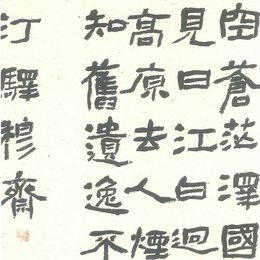 空蒼茫澤國
見日江白迴
高原去人煙
知舊遺逸不
汀驛穆齋